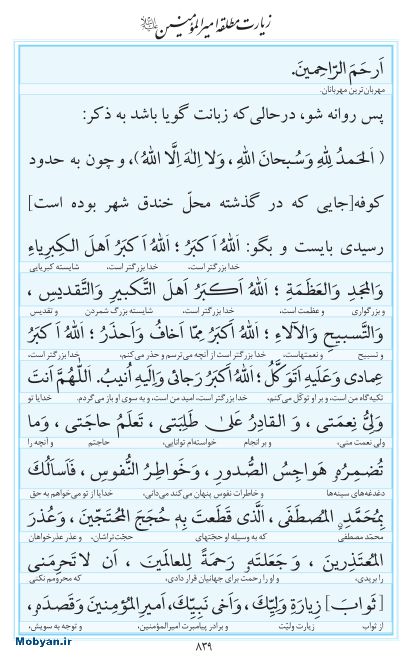 زیارت مطلقه امیرالمؤمنین علیه‌السلام
اَرحَمَ الرّاحِمینَ.
مهربان‌ترین مهربانان.
پس روانه شو، درحالی‌که زبانت گویا باشد به ذکر:
(اَلحَمدُ لِلّٰهِ وَسُبحانَ اللّٰهِ، وَلا اِلٰهَ اِلَّا اللّٰهُ)، و چون به حدود
کوفه[جایی که در گذشته محلّ خندق شهر بوده است]
رسیدی بایست و بگو: اَللّٰهُ اَکبَرُ ؛ اَللّٰهُ اَکبَرُ اَهلَ الکِبرِیاءِ
خدا بزرگتر است، خدا بزرگتر است، شایسته کبریایی
وَالمَجدِ وَالعَظَمَةِ ؛ اَللّٰهُ اَکبَرُ اَهلَ التَّکبیرِ وَالتَّقدیسِ ،
و بزرگواری و عظمت است، خدا بزرگتر است، شایسته بزرگ شمردن و تقدیس
وَالتَّسبیحِ وَالآلاءِ ؛ اَللّٰهُ اَکبَرُ مِمّا اَخافُ وَاَحذَرُ ؛ اَللّٰهُ اَکبَرُ
و تسبیح و نعمتهاست، خدا بزرگتر است از آنچه می‌ترسم و حذر می‌کنم، خدا بزرگتر است،
عِمادی وَعَلَیهِ اَتَوَکَّلُ ؛ اَللّٰهُ اَکبَرُ رَجائی وَاِلَیهِ اُنیبُ. اَللّٰهُمَّ اَنتَ
تکیه‌گاه من است، و بر او توکّل می‌کنم، خدا بزرگتر است، امید من است، و به سوی او باز می‌گردم. خدایا تو
وَلِیُّ نِعمَتی ، وَ القادِرُ عَلیٰ طَلِبَتی ، تَعلَمُ حاجَتی ، وَما
ولی نعمت منی، و بر انجام خواسته‌ام توانایی، حاجتم و آنچه را
تُضمِرُهُ هَواجِسُ الصُّدورِ ، وَخَواطِرُ النُّفوسِ ، فَاَسأَلُکَ
دغدغه‌های سینه‌ها و خاطرات نفوس پنهان می‌کند می‌دانی، خدایا از تو می‌خواهم به حق
بِمُحَمَّدٍ المُصطَفیٰ ، الَّذی قَطَعتَ بِهِ حُجَجَ المُحتَجّینَ ، وَعُذرَ
محمّد مصطفی که به وسیله او حجّتهای حجّت‌تراشان، و عذر عذرخواهان
المُعتَذِرینَ ، وَجَعَلتَهُ رَحمَةً لِلعالَمینَ ، اَن لا تَحرِمَنی
را بریدی، و او را رحمت برای جهانیان قرار دادی، که محرومم نکنی
[ثَوابَ] زِیارَةِ وَلِیِّکَ ، وَاَخی نَبِیِّکَ، اَمیرِالمُؤمِنینَ وَقَصدَهُ،
از ثواب زیارت ولیّت و برادر پیامبرت امیرالمؤمنین، و توجه به سویش،
Mobyan.ir
۸۳۹